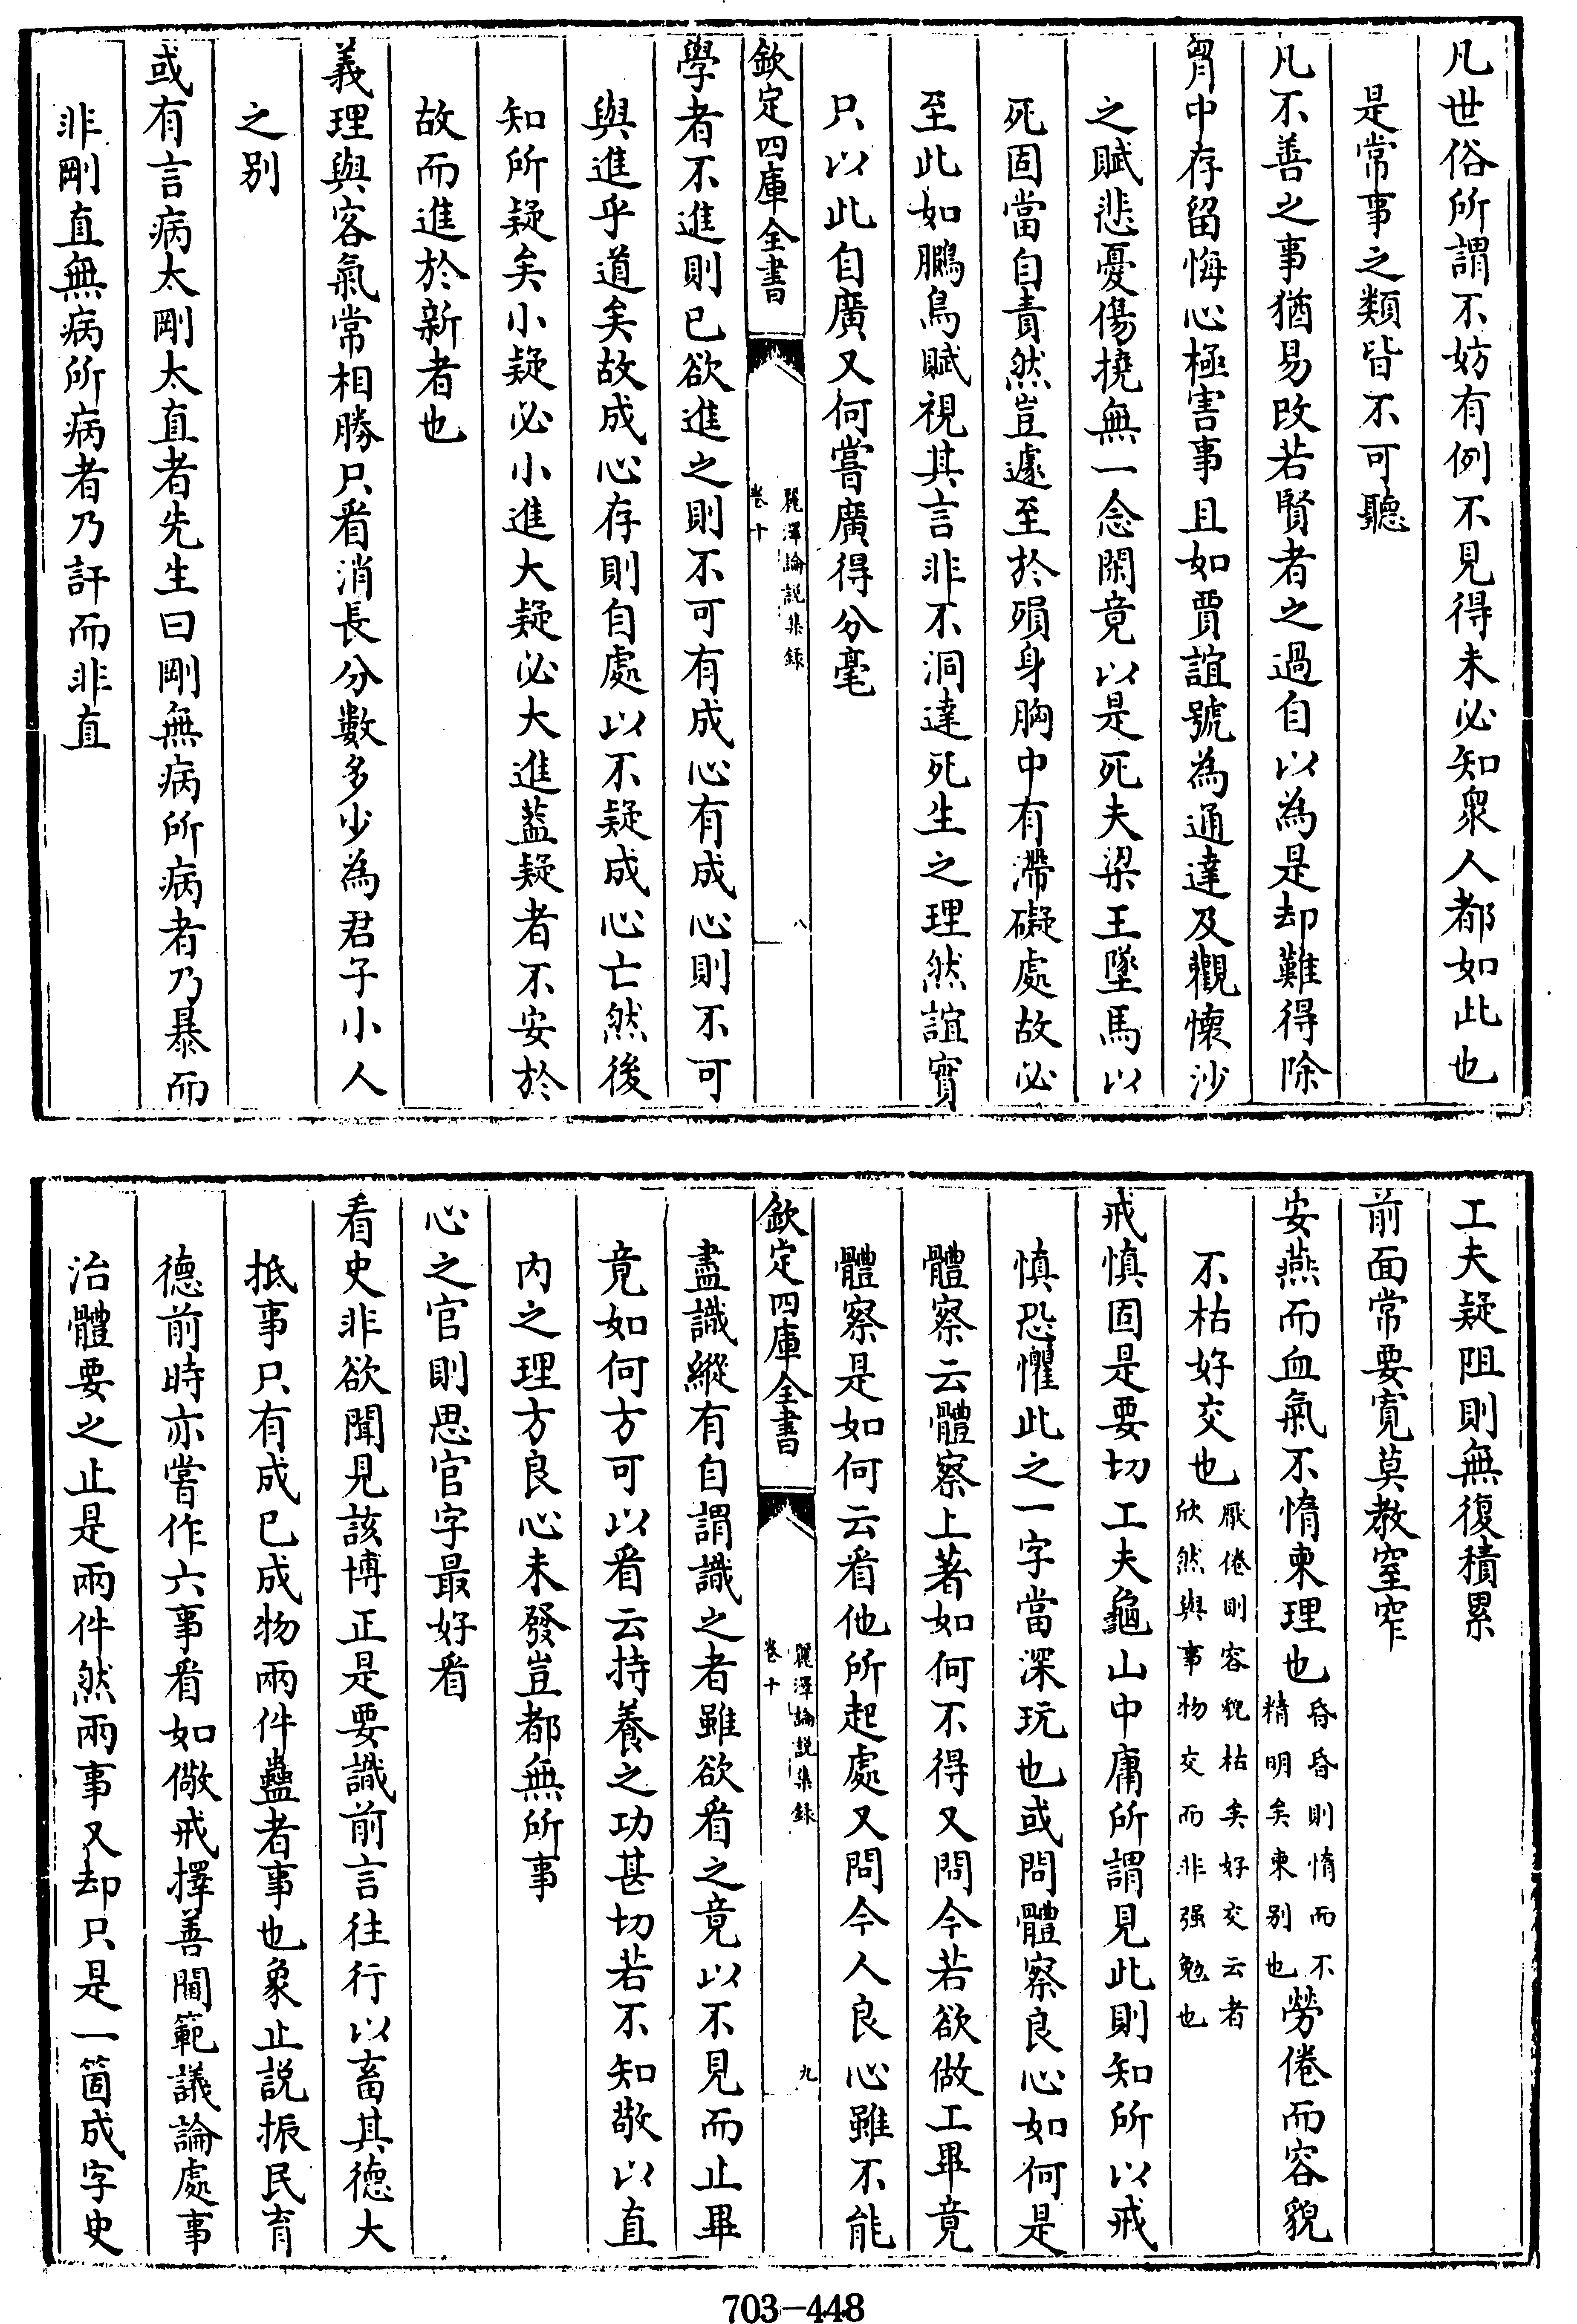 凡世俗所謂不妨有例不見得未必知衆人都如此也
是常事之類皆不可聽
凡不善之事猶易改若賢者之過自以為是却難得除
胷中存留悔心極害事且如賈誼號為通達及觀懷沙
之賦悲憂傷撓無一念閑竟以是死夫梁王墜馬以
死固當自責然豈遽至於殞身胸中有滯礙處故必
至此如鵩鳥賦視其言非不洞達死生之理然誼實
只以此自廣又何嘗廣得分毫
欽定四庫全書
麗澤論説集録
卷十
八
學者不進則已欲進之則不可有成心有成心則不可
與進乎道矣故成心存則自處以不疑成心亡然後
知所疑矣小疑必小進大疑必大進蓋疑者不安於
故而進於新者也
義理與客氣常相勝只看消長分數多少為君子小人
之别
或有言病太剛太直者先生曰剛無病所病者乃暴而
非剛直無病所病者乃訐而非直
工夫疑阻則無復積累
前面常要寛莫教窒窄
安燕而血氣不惰柬理也昏昏則惰而不精明矣柬别也勞倦而容貌
不枯好交也厭倦則容貌枯矣好交云者欣然與事物交而非强勉也
戒慎固是要切工夫龜山中庸所謂見此則知所以戒
慎恐懼此之一字當深玩也或問體察良心如何是
體察云體察上著如何不得又問今若欲做工畢竟
體察是如何云看他所起處又問今人良心雖不能
欽定四庫全書
麗澤論説集録
卷十
九
盡識縱有自謂識之者雖欲看之竟以不見而止畢
竟如何方可以看云持養之功甚切若不知敬以直
内之理方良心未發豈都無所事
心之官則思官字最好看
看史非欲聞見該博正是要識前言往行以畜其德大
抵事只有成已成物兩件蠱者事也象止説振民育
德前時亦嘗作六事看如儆戒擇善閫範議論處事
治體要之止是兩件然兩事又却只是一箇成字史
703-448